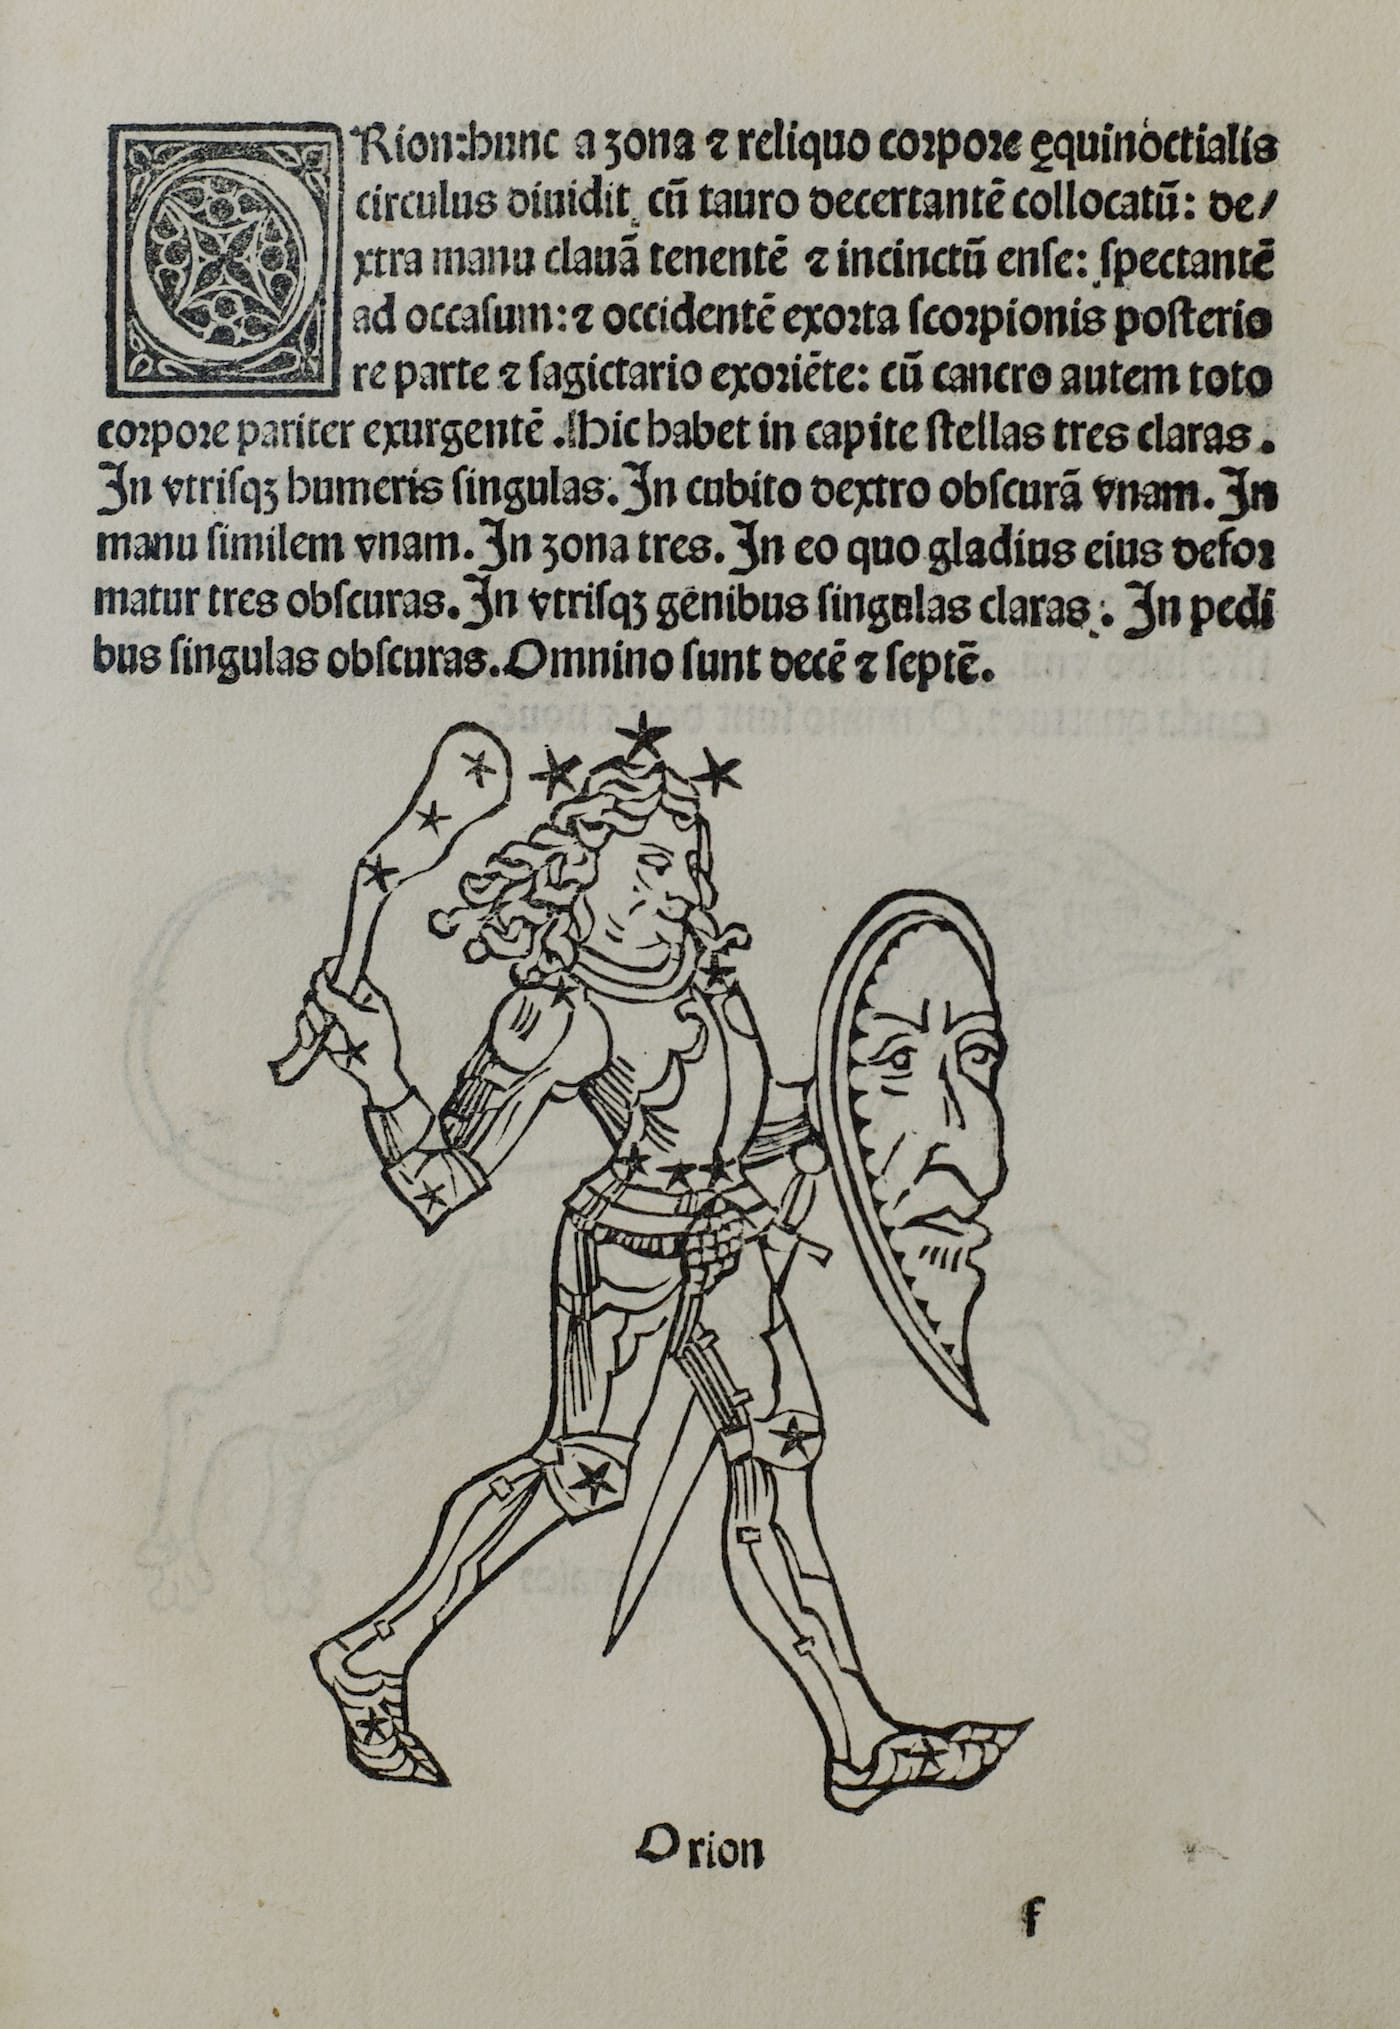 ORion:hunc a zona ⁊ reliquo corpore ęquinoctialis
circulus diuidit cū tauro decertantē collocatū: de/
xtra manu clauā tenentē ⁊ incinctū ense: spectantē
ad occasum:⁊ occidentē exorta scorpionis posterio
re parte ⁊ sagictario exoriēte: cū cancro autem toto
corpore pariter exurgentē. Hic habet in capite stellas tres claras.
In vtrisqꝫ humeris singulas. In cubito dextro obscurā vnam. In
manu similem vnam. In zona tres. In eo quo gladius eius defor
matur tres obscuras. In vtrisqꝫ genibus singulas claras. In pedi
bus singulas obscuras. Omnino sunt decē ⁊ septē.
Orion
f